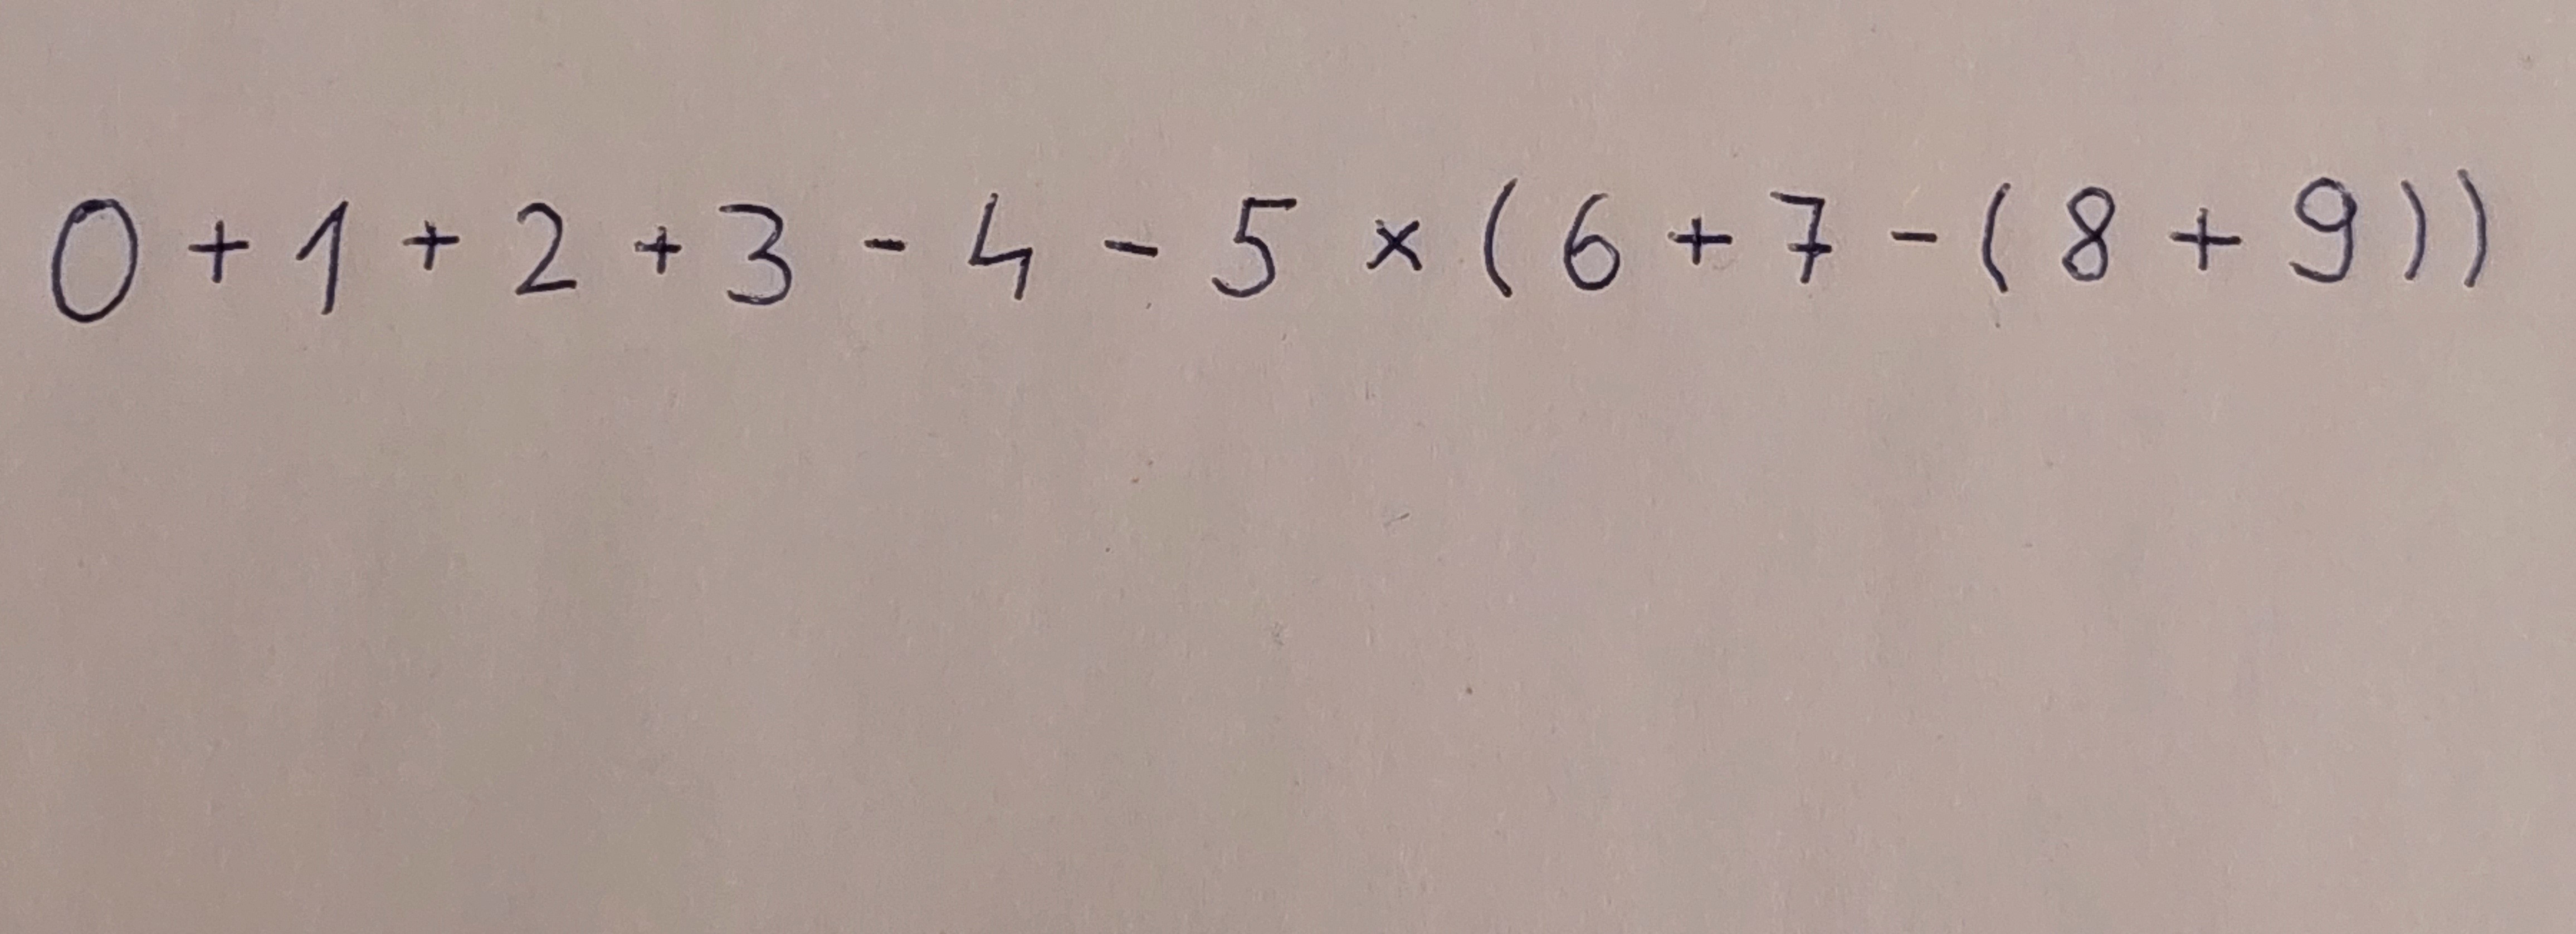 0 + 1 + 2 + 3 - 4 - 5 × ( 6 + 7 - ( 8 + 9 ) )